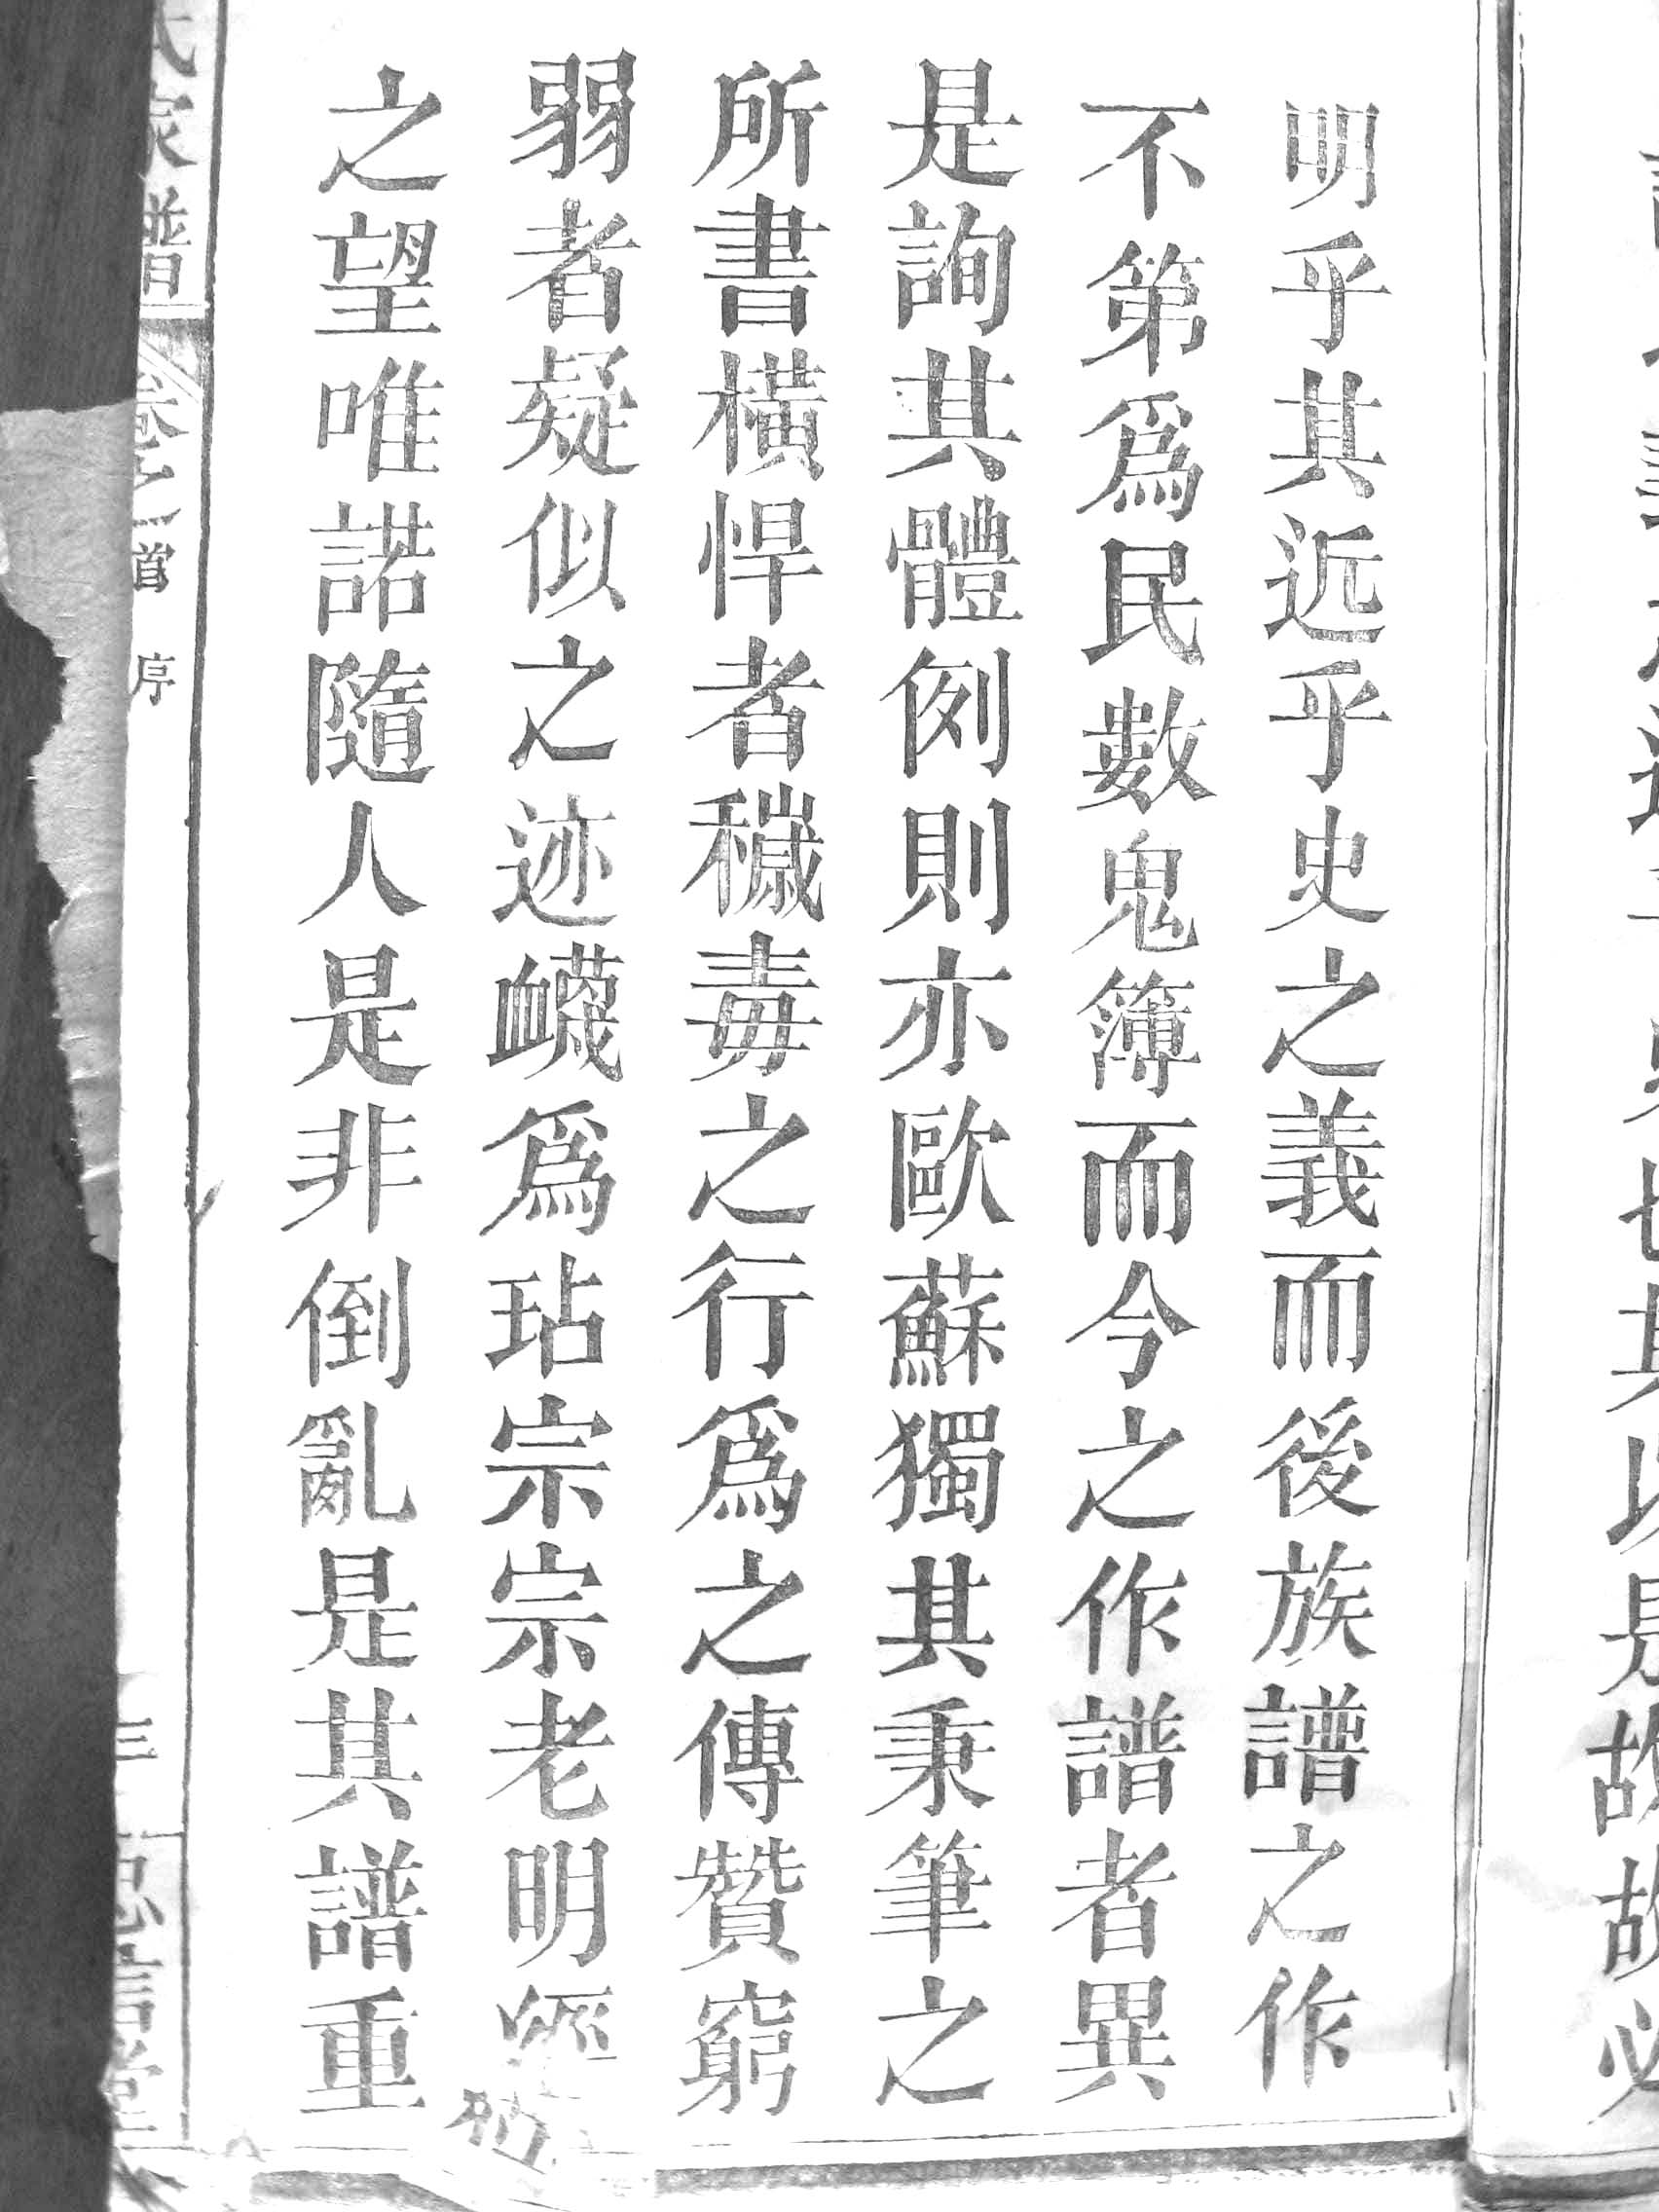 明乎其近乎史之義而後族譜之作
不第爲民數鬼簿而今之作譜者異
是詢其體例則亦歐蘇獨其秉筆之
所書橫悍者穢毒之行爲之傳贊窮
弱者疑似之迹衊爲玷宗宗老明經
之望唯諾隨人是非倒亂是其譜重
氏家譜
卷之首 序
三
忠信堂